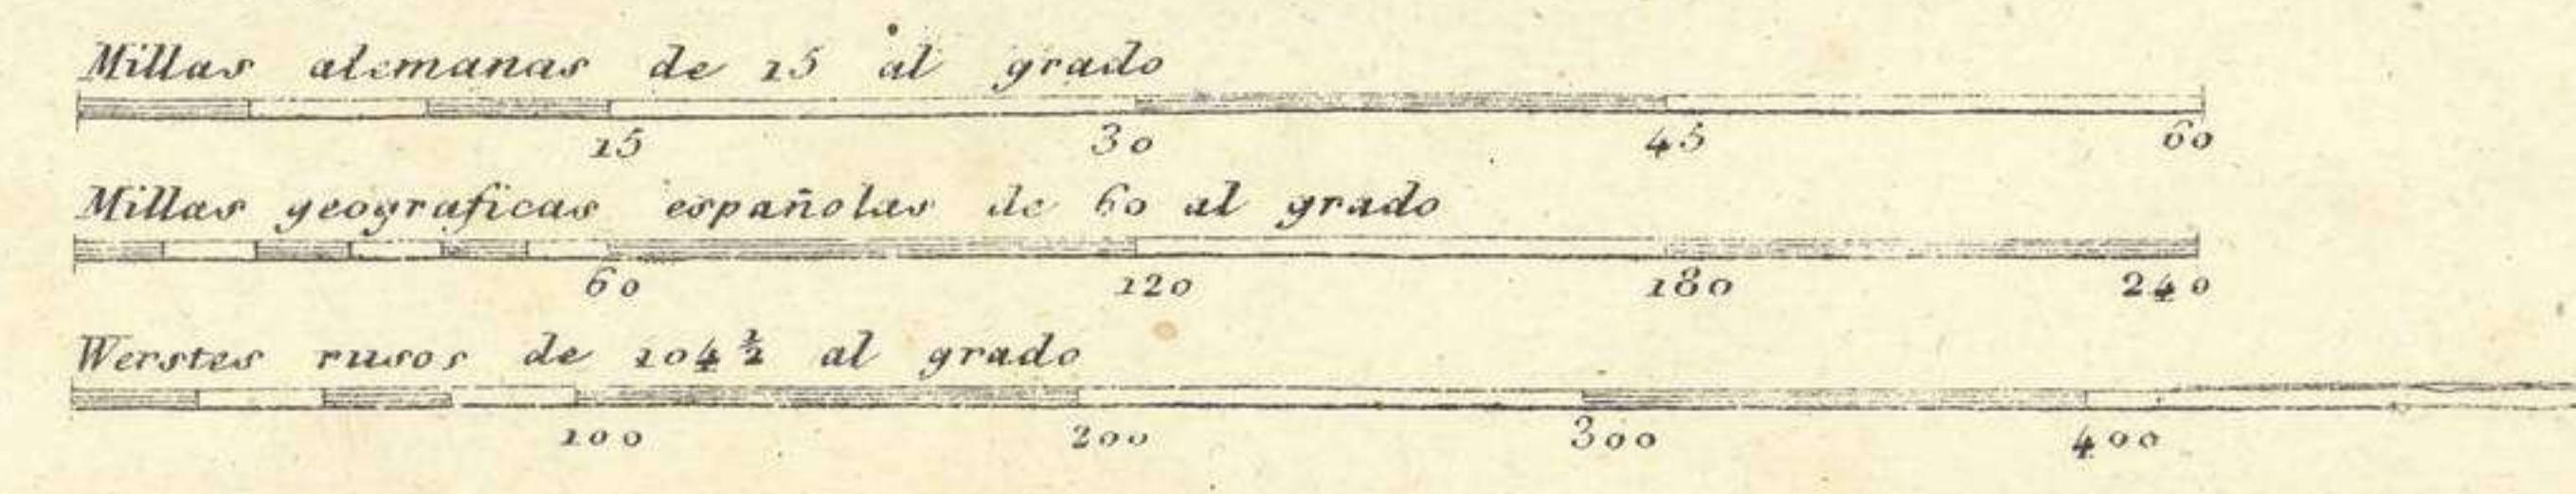 Millas alemanas de 15 al grado
15 30 45 60
Millas geograficas españolas de 60 al grado
60 120 180 240
Werstes rusos de 104 ½ al grado
100 200 300 400